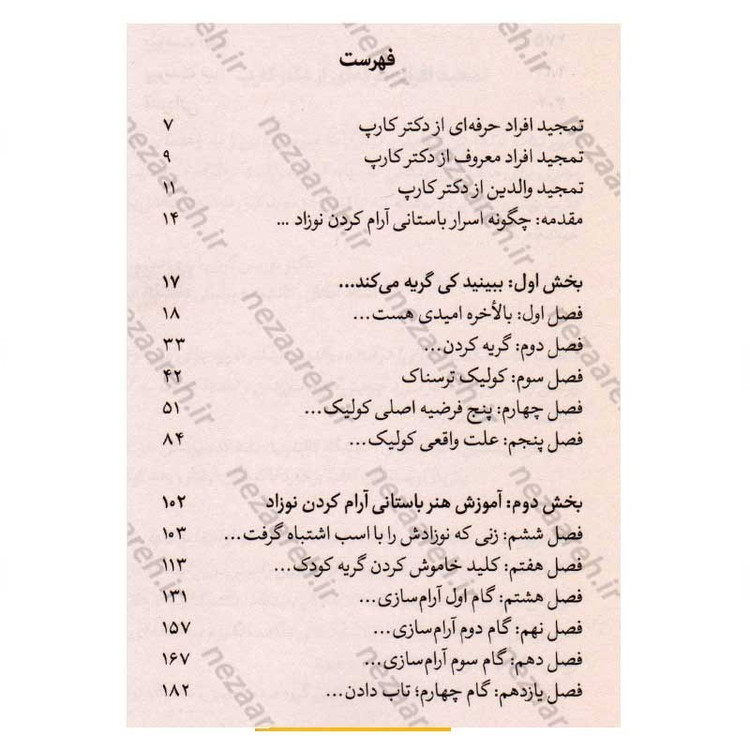 فهرست
تمجید افراد حرفه‌ای از دکتر کارپ ۷
تمجید افراد معروف از دکتر کارپ ۹
تمجید والدین از دکتر کارپ ۱۱
مقدمه: چگونه اسرار باستانی آرام کردن نوزاد ... ۱۴
بخش اول: ببینید کی گریه می‌کند... ۱۷
فصل اول: بالأخره امیدی هست... ۱۸
فصل دوم: گریه کردن... ۳۳
فصل سوم: کولیک ترسناک ۴۲
فصل چهارم: پنج فرضیه اصلی کولیک... ۵۱
فصل پنجم: علت واقعی کولیک... ۸۴
بخش دوم: آموزش هنر باستانی آرام کردن نوزاد ۱۰۲
فصل ششم: زنی که نوزادش را با اسب اشتباه گرفت... ۱۰۳
فصل هفتم: کلید خاموش کردن گریه کودک... ۱۱۳
فصل هشتم: گام اول آرام‌سازی... ۱۳۱
فصل نهم: گام دوم آرام‌سازی... ۱۵۷
فصل دهم: گام سوم آرام‌سازی... ۱۶۷
فصل یازدهم: گام چهارم؛ تاب دادن... ۱۸۲
nezaareh.ir